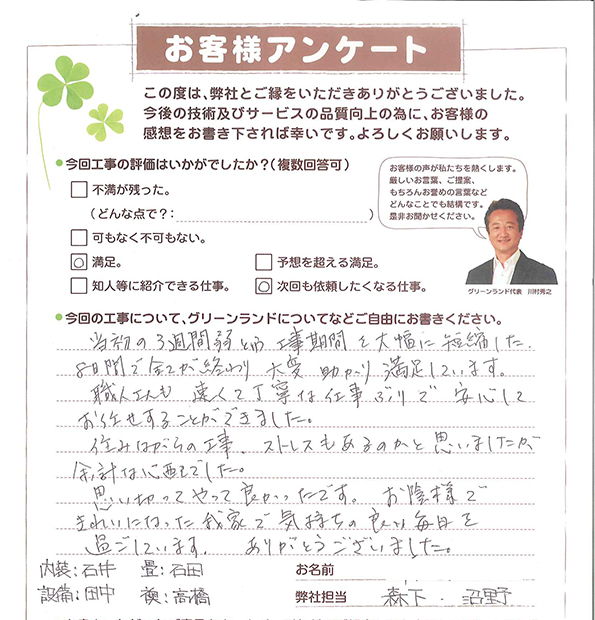 お客様アンケート
この度は、弊社とご縁をいただきありがとうございました。
今後の技術及びサービスの品質向上の為に、お客様の
感想をお書き下されば幸いです。よろしくお願いします。
●今回工事の評価はいかがでしたか？（複数回答可）
□不満が残った。
（どんな点で？：　）
□可もなく不可もない。
☑満足。　□予想を超える満足。
□知人等に紹介できる仕事。　☑次回も依頼したくなる仕事。
お客様の声が私たちを熱くします。
厳しいお言葉、ご提案、
もちろんお誉めの言葉など
どんなことでも結構です。
是非お聞かせください。
グリーンランド代表　川村秀之
●今回の工事について、グリーンランドについてなどご自由にお書きください。
当初の3週間弱という工事期間を大幅に短縮した.
8日間で全てが終わり 大変 助かり 満足しています。
職人さんも 速くて丁寧な仕事ぶりで 安心して
お任せすることができました。
住みながらの工事、ストレスもあるのかと思いましたが
余計な心配でした。
思い切ってやって良かったです。 お陰様で
きれいになった我家で気持ちの良い毎日を
過ごしています. ありがとうございました。
内装：石井　畳：石田
設備：田中　襖：高橋
お名前
弊社担当　森下・沼野